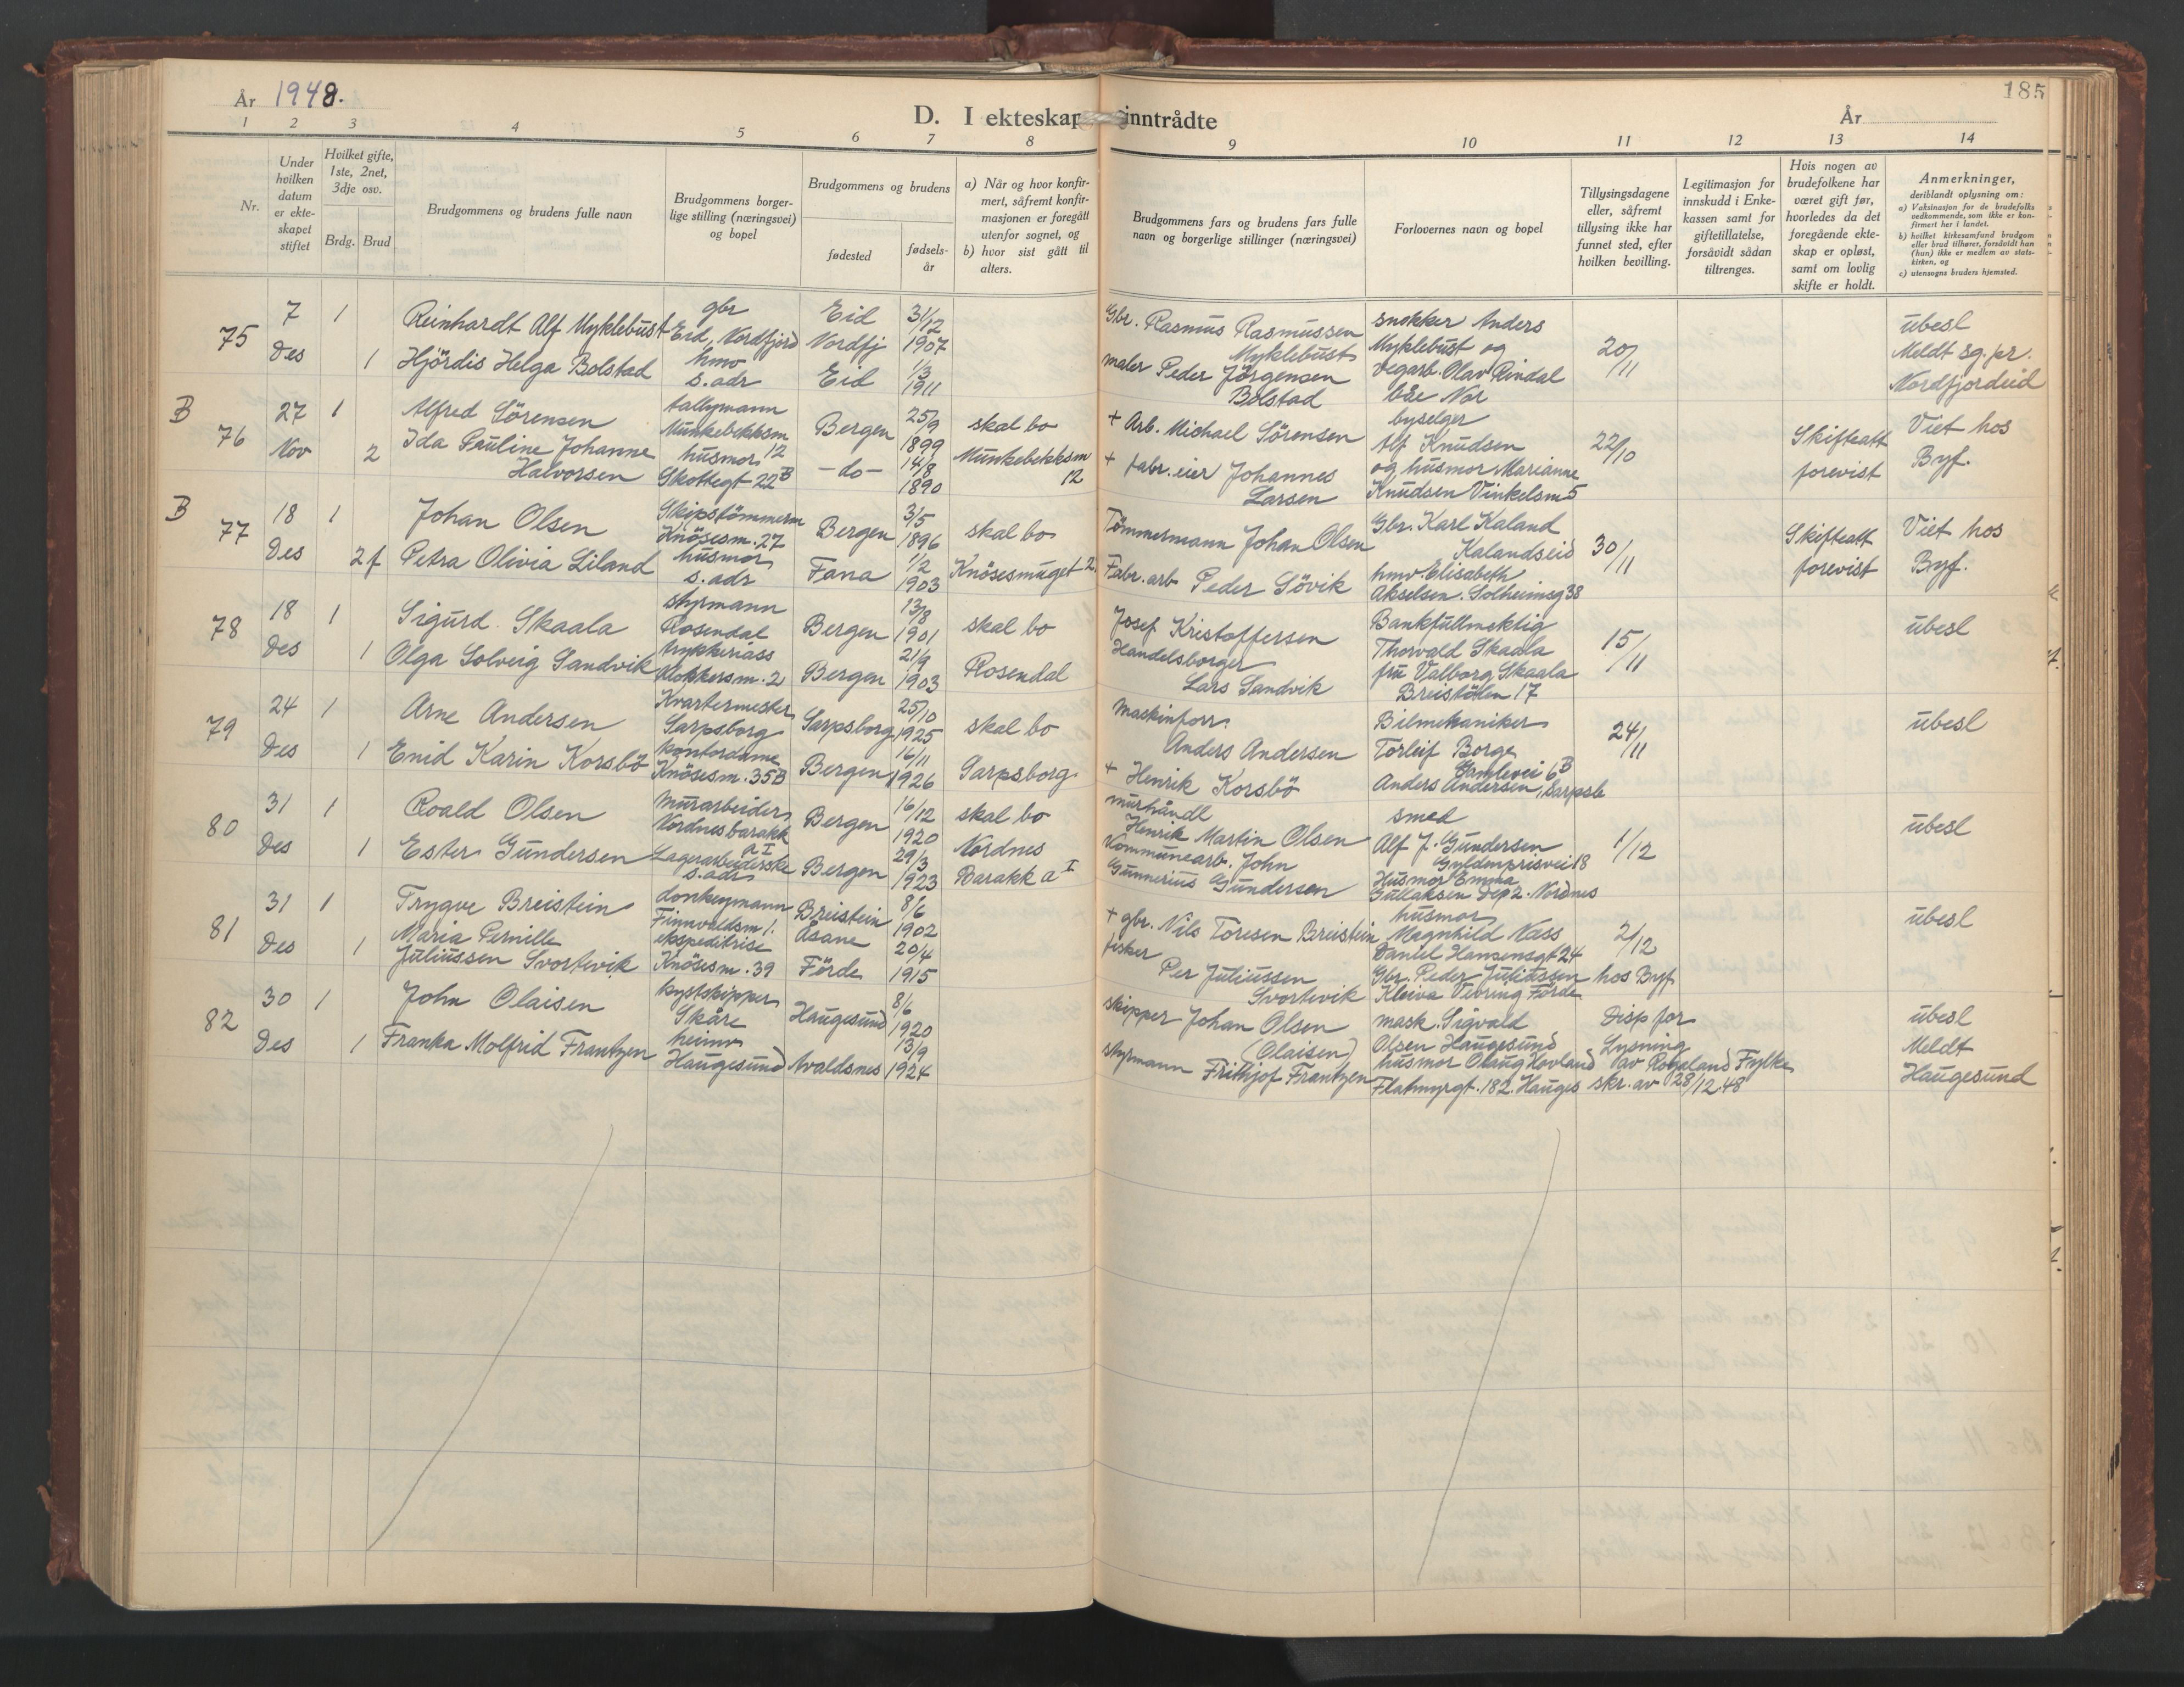 År 1948.
D. I ekteskap inntrådte
År
185
1 2 3 4 5 6 7 8 9 10 11 12 13 14
Nr.
Under hvilken datum er ekteskapet stiftet
Hvilket gifte, 1ste, 2net, 3dje osv.
Brdg. Brud
Brudgommens og brudens fulle navn
Brudgommens borgerlige stilling (næringsvei) og bopel
Brudgommens og brudens
fødested
fødselsår
a) Når og hvor konfirmert, såfremt konfirmasjonen er foregått utenfor sognet, og
b) hvor sist gått til alters.
Brudgommens fars og brudens fars fulle navn og borgerlige stillinger (næringsvei)
Forlovernes navn og bopel
Tillysingsdagene eller, såfremt tillysing ikke har funnet sted, efter hvilken bevilling.
Legitimasjon for innskudd i Enkekassen samt for giftetillatelse, forsåvidt sådan tiltrenges.
Hvis nogen av brudefolkene har været gift før, hvorledes da det foregående ekteskap er opløst, samt om lovlig skifte er holdt.
Anmerkninger,
deriblandt oplysning om:
a) Vaksinasjon for de brudefolks vedkommende, som ikke er konfirmert her i landet.
b) hvilket kirkesamfund brudgom eller brud tilhører, forsåvidt han (hun) ikke er medlem av statskirken, og
c) utensogns bruders hjemsted.
75
7 Des
1
Reinhardt Alf Myklebust
gbr
Eid, Nordfjord
Eid
Nordfj
31/12
1907
Gbr. Rasmus Rasmussen
Myklebust
snekker Anders
Myklebust og
vegarb. Olav Rindal
både Nor
20/11
ubesl
Meldt sg.pr.
Nordfjordeid
1
Hjördis Helga Bolstad
hmv
s.adr
Eid
1/3
1911
maler Peder Jörgensen
Bolstad
B
76
27 Nov
1
Alfred Sörensen
tallymann
Munkebekksm
12
Bergen
25/9
1899
skal bo
Munkebekksm
12
+ Arb. Michael Sörensen
byselger
Alf Knudsen
og husmor Marianne
Knudsen Vinkelsm 5
22/10
Skifteatt
forevist
Viet hos
Byf.
2
Ida Pauline Johanne
Halvorsen
husmor
Skottegt 22B
-do-
14/8
1890
+ fabr.eier Johannes
Larsen
B
77
18 Des
1
Johan Olsen
Skipstömmerm
Knösesm. 27
Bergen
3/5
1896
skal bo
Knösesmuget 2
Tömmermann Johan Olsen
Gbr. Karl Kaland
Kalandseid
hmv. Elisabeth
Akselsen. Solheimsg 38
30/11
Skifteatt
forevist
Viet hos
Byf.
2 f
Petra Olivia Liland
husmor
s.adr
Fana
1/2
1903
Fabr.arb Peder Sövik
78
18 Des
1
Sigurd Skaala
styrmann
Rosendal
Bergen
13/8
1901
skal bo
Rosendal
Josef Kristoffersen
Bankfullmektig
Thorvald Skaala
fru Valborg Skaala
Breistölen 17
15/11
ubesl
1
Olga Solveig Sandvik
trykkeriass
Klokkersm. 2
Bergen
21/9
1903
Handelsborger
Lars Sandvik
79
24 Des
1
Arne Andersen
Kvartermester
Sarpsborg
Sarpsborg
25/10
1925
skal bo
Sarpsborg
maskinforr.
Anders Andersen
Bilmekaniker
Torleif Borge
Gamlevei 6B
Anders Andersen, Sarpsb
24/11
ubesl
1
Enid Karin Korsbö
kontordame
Knösesm. 35B
Bergen
16/11
1926
+ Henrik Korsbö
80
31 Des
1
Roald Olsen
murarbeider
Nordnesbarakk
a I
Bergen
16/12
1920
skal bo
Nordnes
Barakk a I
murhåndl
Henrik Martin Olsen
smed
Alf J. Gundersen
Gyldenprisvei 18
Husmor Emma
Gullaksen Dep 2. Nordnes
1/12
ubesl
1
Ester Gundersen
Lagerarbeiderske
s.adr
Bergen
29/3
1923
Kommunearb. John
Gunnerius Gundersen
81
31 Des
1
Trygve Breistein
donkeymann
Finnvaldsm 1.
Breistein
Åsane
8/6
1902
+ gbr. Nils Toresen Breistein
husmor
Magnhild Næss
Daniel Hansensgt 24
Gbr. Peder Juliussen
Kleiva Vevring Förde
2/12
hos Byf
ubesl
1
Maria Pernille
Juliussen Svortevik
ekspeditrise
Knösesm. 39
Förde
20/4
1915
fisker
Per Juliussen
Svortevik
82
30 Des
1
John Olaisen
kystskipper
Skåre
Haugesund
8/6
1920
skipper Johan Olsen
(Olaisen)
mask. Sigvald
Olsen Haugesund
husmor Olaug Hovland
Flatmyrgt. 182. Hauges
Disp for
Lysning
av Rogaland Fylke
skr. av 28/12.48
ubesl
Meldt
Haugesund
1
Franka Molfrid Frantzen
heimv
Haugesund
Avaldsnes
13/9
1924
styrmann Frithjof Frantzen